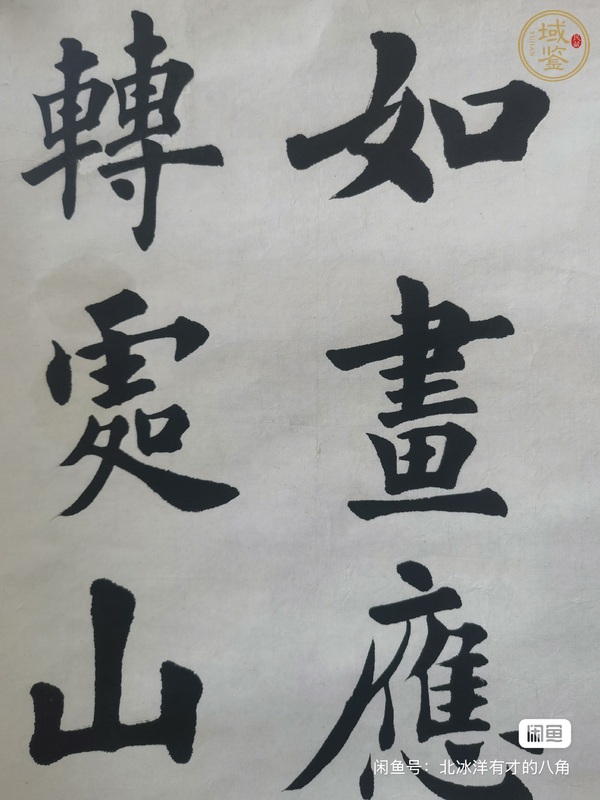 如畫應
轉處山
域鉴
YUJIAN
闲鱼
闲鱼号：北冰洋有才的八角